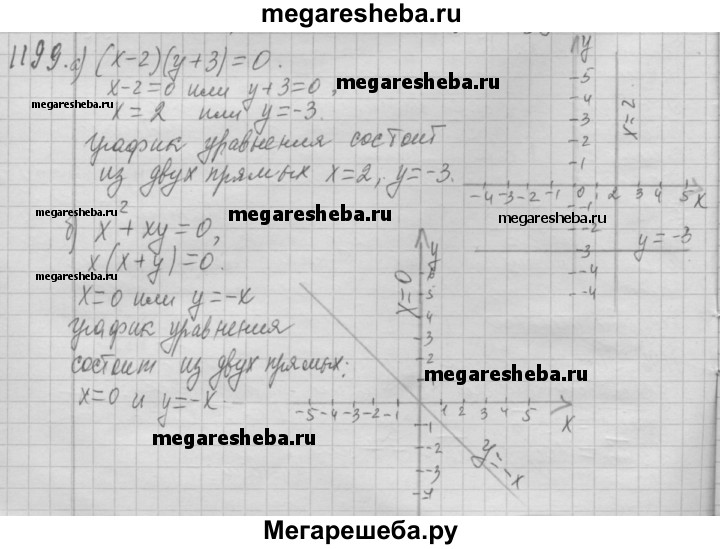 megaresheba.ru
1199. а) (x-2)(y+3)=0.
x-2=0 или y+3=0,
megaresheba.ru
megaresheba.ru
x=2 или y=-3.
график уравнения состоит
из двух прямых x=2, y=-3.
y
5
4
3
2
1
x=2
-4 -3 -2 -1 0 1 2 3 4 5 x
-1
-2
-3
-4
y=-3
megaresheba.ru
megaresheba.ru
б) x²+xy=0,
x(x+y)=0.
megaresheba.ru
x=0 или y=-x
график уравнения
состоит из двух прямых:
x=0 и y=-x.
x=0
y
6
5
4
3
2
megaresheba.ru
-5 -4 -3 -2 -1 1 2 3 4 5 x
-1
-2
-3
-4
y=-x
megaresheba.ru
Мегарешеба.ру